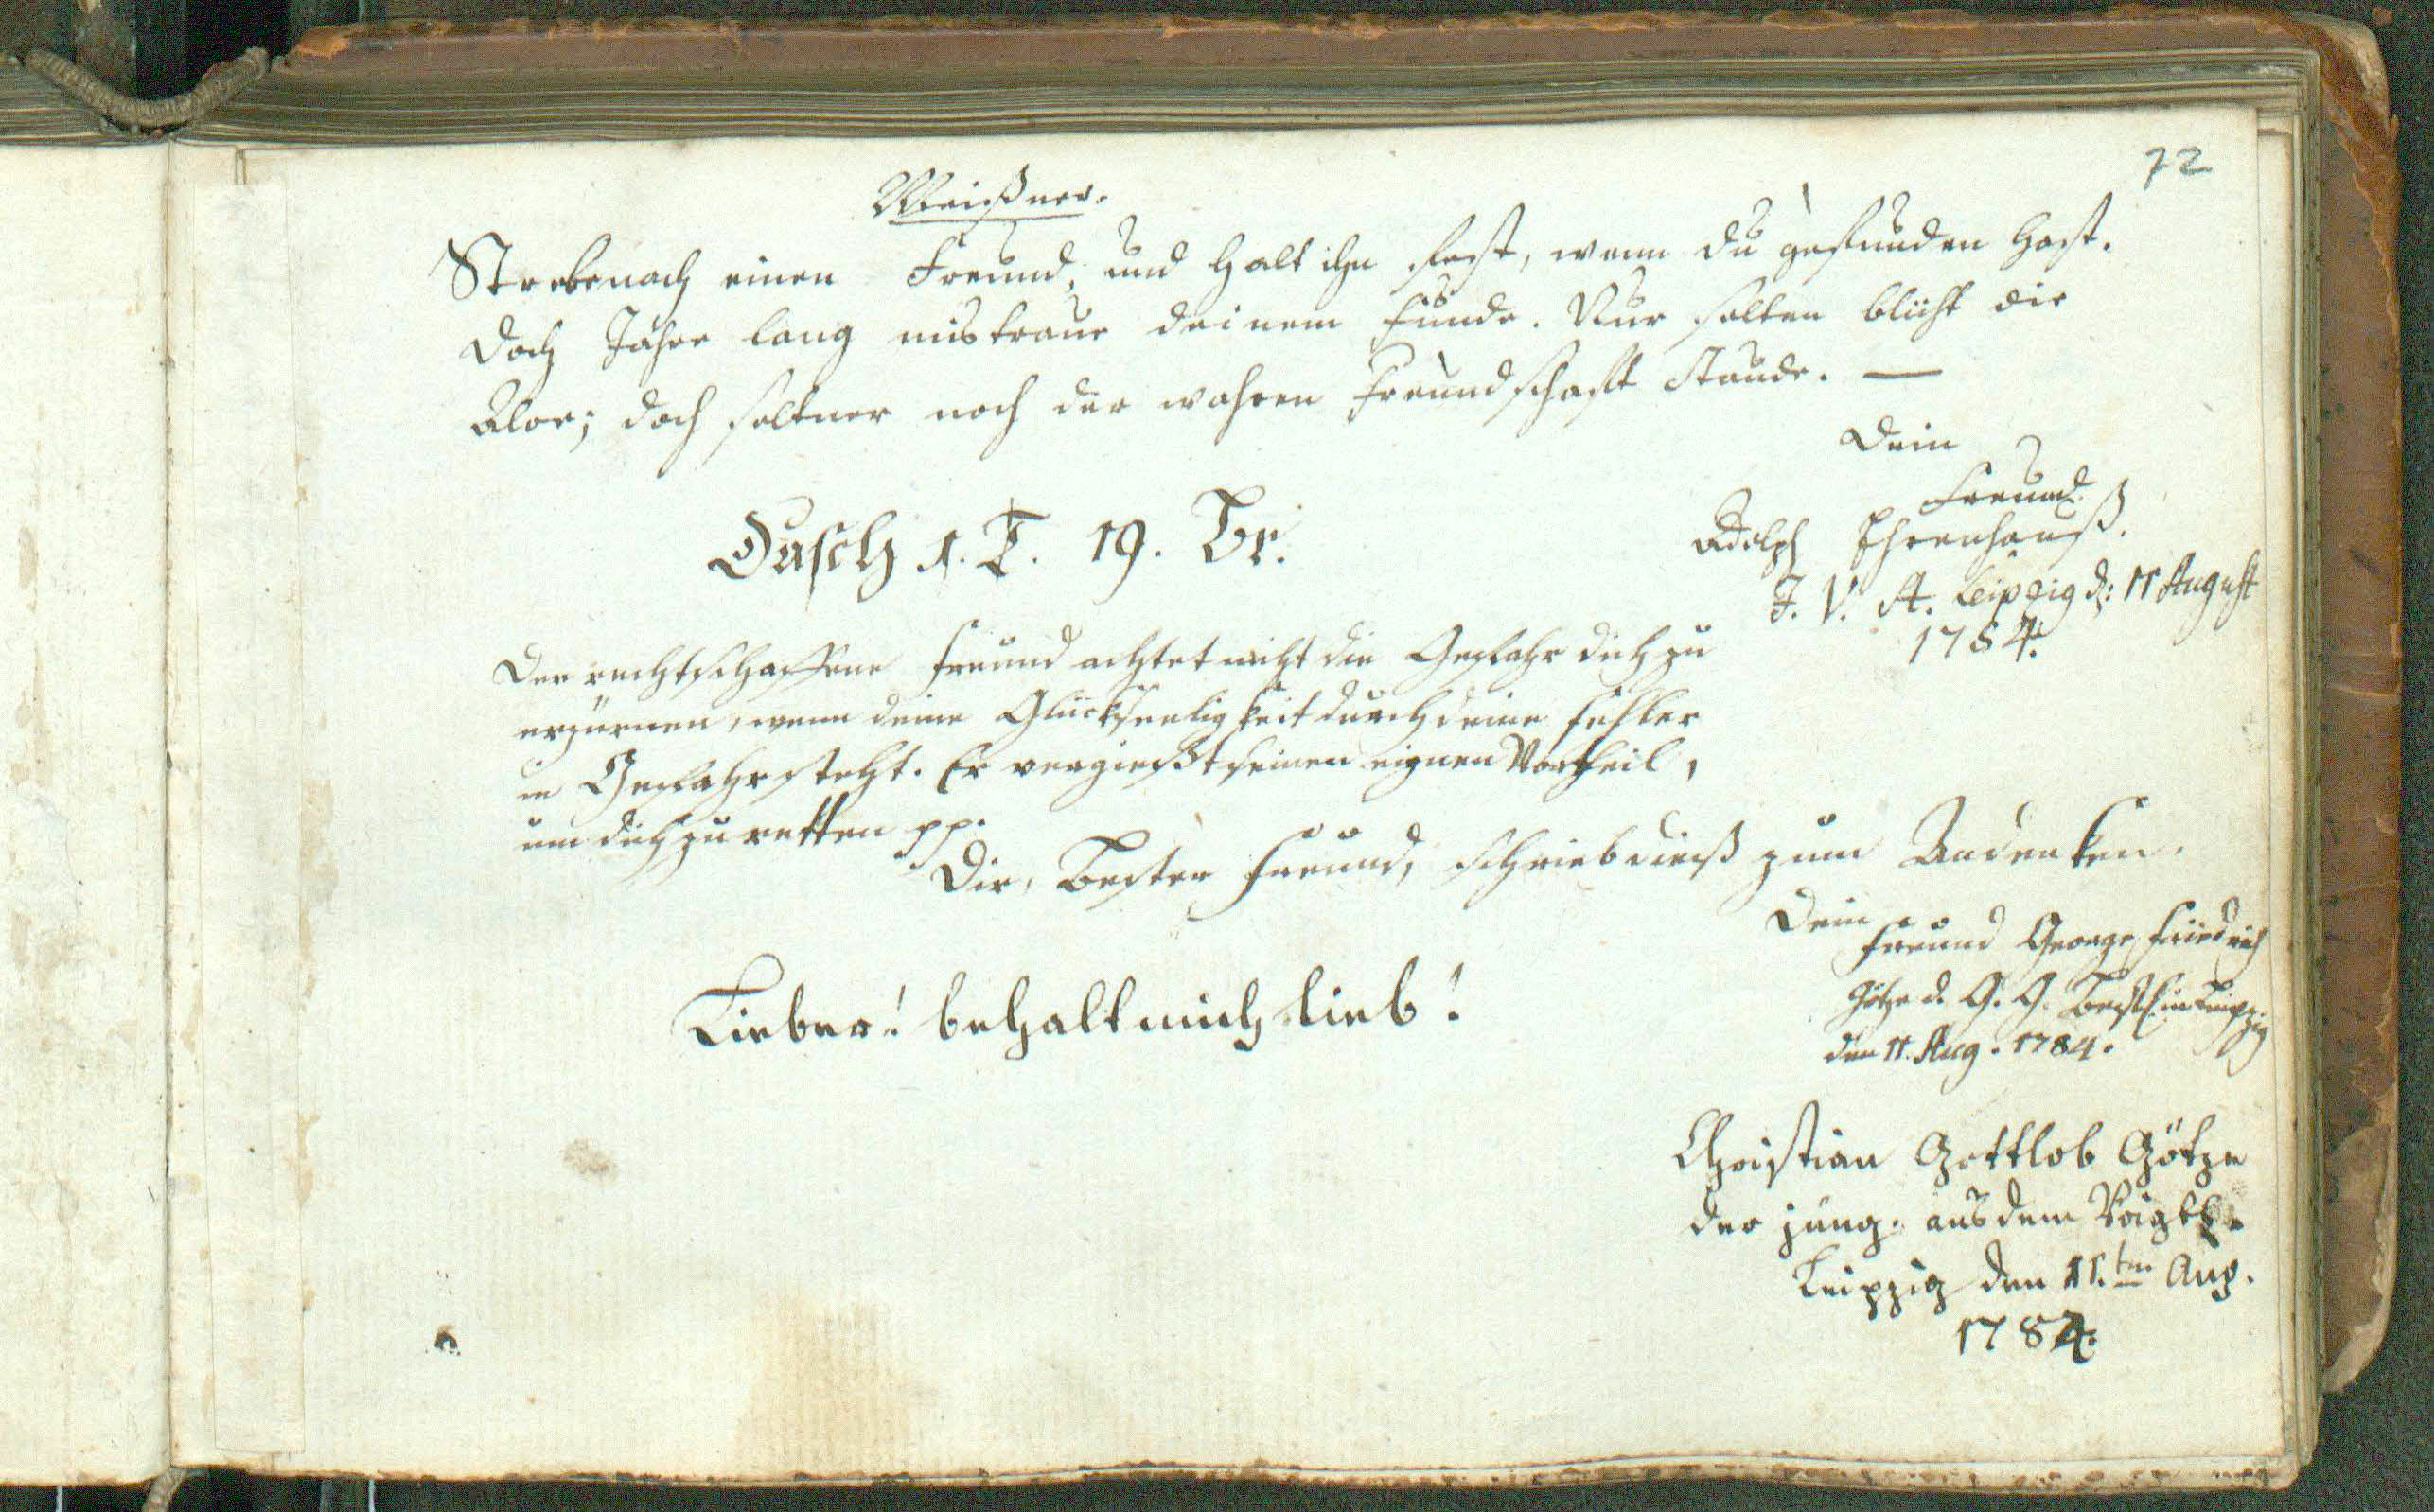 72
Meißner.
Strebe nach einen Freund, und halt ihn fest, wenn du gefunden hast.
Doch Jahre lang mistraue deinem Funde. Nur selten blüht die
Aloe; doch seltner noch der wahren Freundschaft Staude. —
Dein
Freund
Adolph Ehrenhauß.
J. V. St. Leipzig d: 11 August
1784.
Dusch 1. T. 19. Br.
Der rechtschaffene Freund achtet nicht die Gefahr dich zu
erzürnen, wenn deine Glückseeligkeit durch deine Fehler
in Gefahr steht. Er vergießt seinen eignen Vortheil,
um dich zu retten pp.
Dir, Bester Freund, schrieb dieß zum Andenken.
Dein
Freund George Friedrich
Götze d. G. G. Befl. in Leipzig
den 11. Aug. 1784.
Lieber! behalt mich lieb!
Christian Gottlob Götze
der jüng. aus dem Voigtl.
Leipzig den 11.ten Aug.
1784.